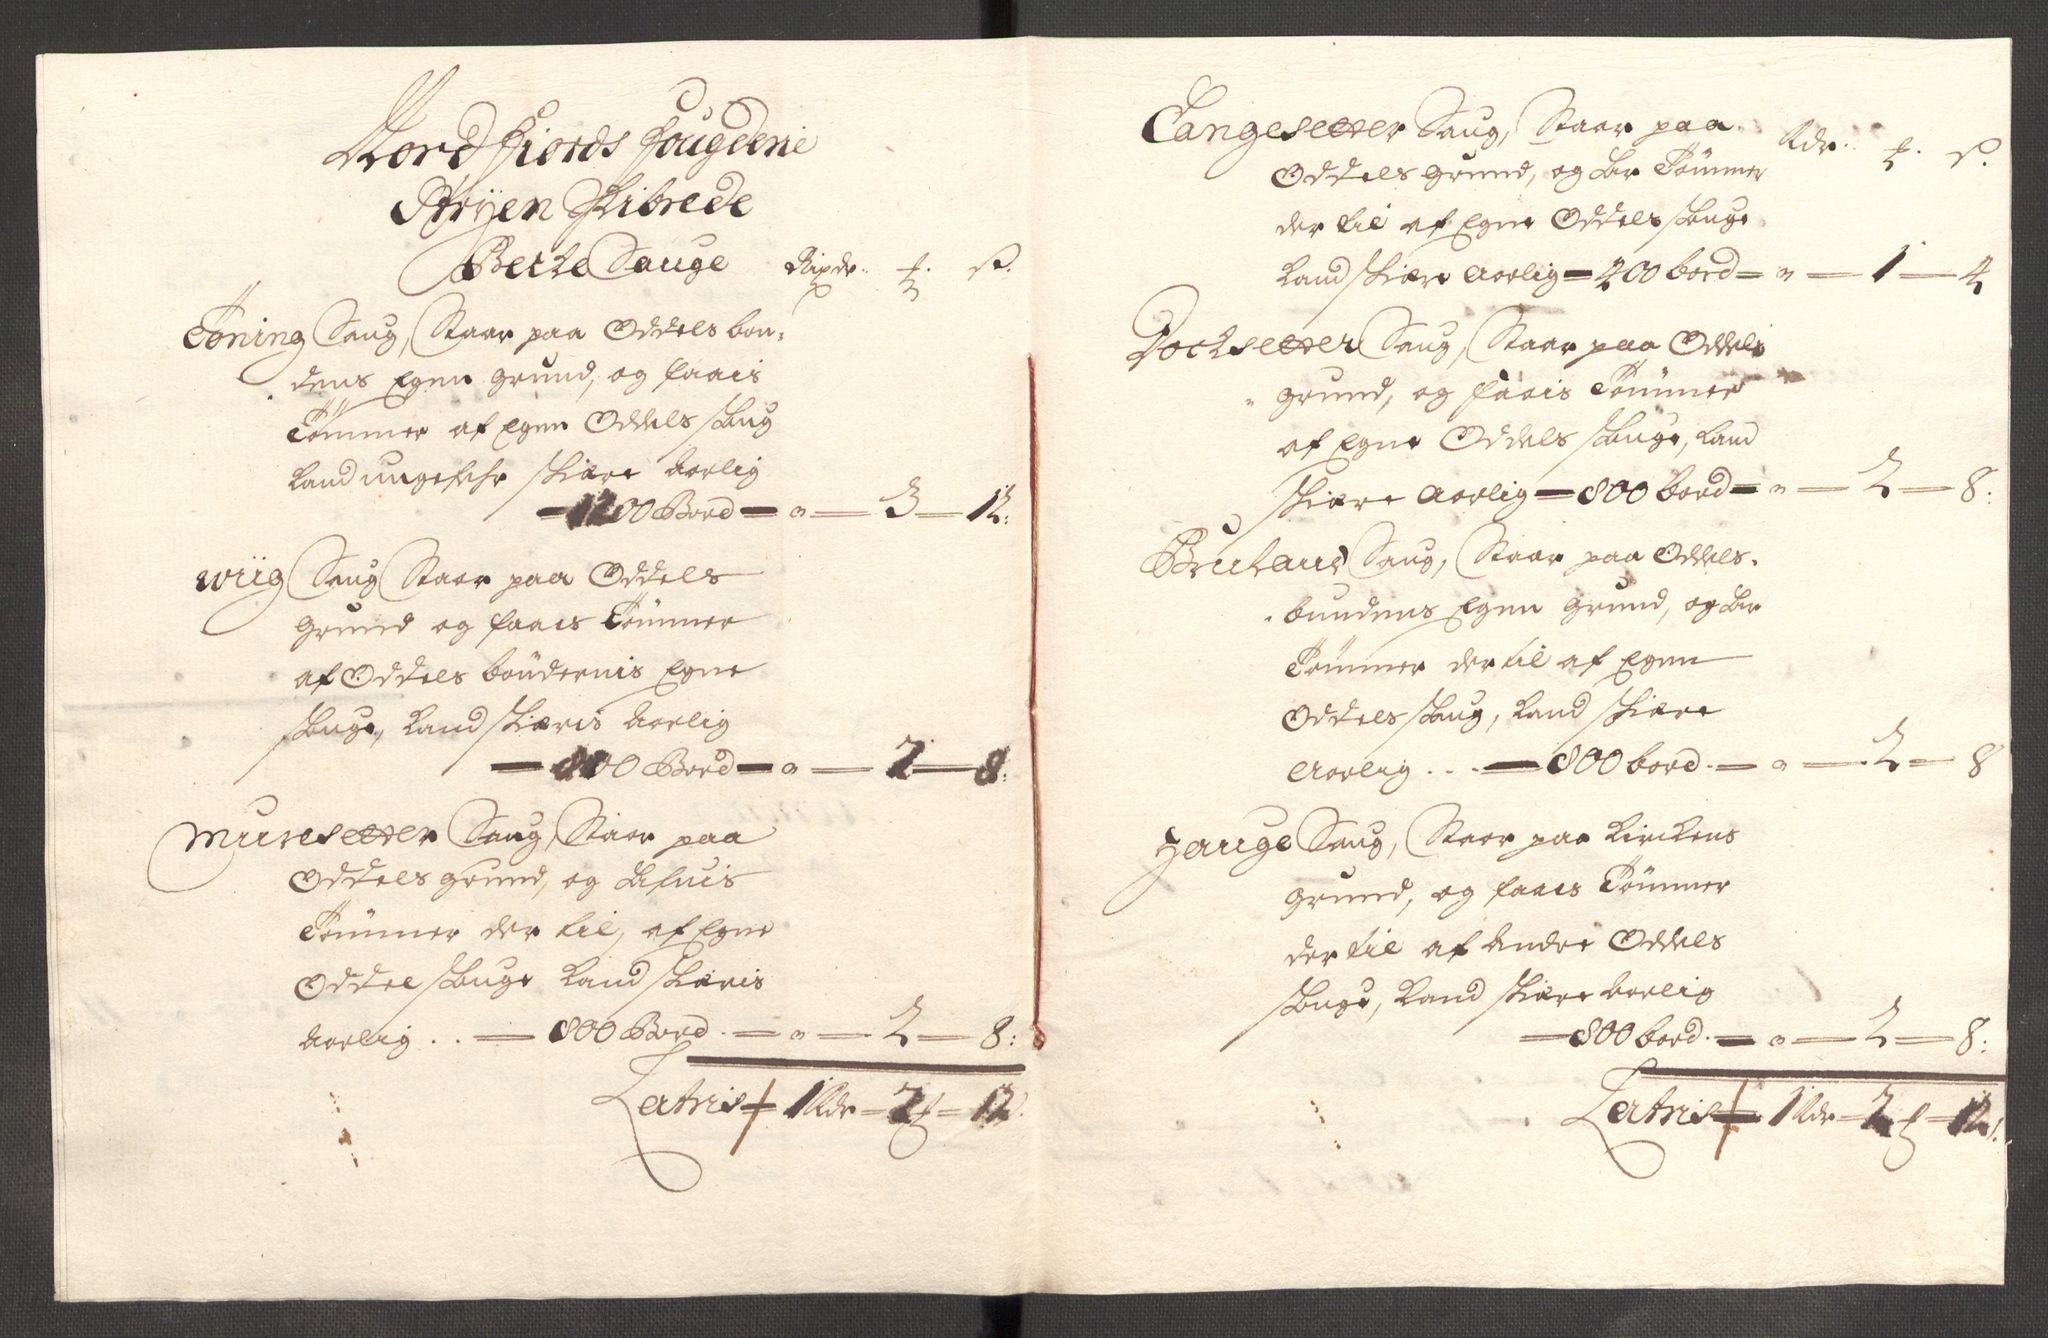 Nordfiords Fougderie
Stryen Skibrede
Becke Sauge Rixdr. ß.
Toning Saug, Staar paa Oddels bon-
dens Egen grund, og faais
Tømmer af Egen Oddels skoug
Kand ungefehr skiære Aarlig
1200 Bord 3 12:
Wiig Saug Staar paa Oddels
grund og faais Tømmer
af Oddels bøndernis Egne
skouge, Kand skiæris Aarlig
800 Bord 2 8:
Muresetter Saug, Staar paa
Oddels grund, og
Tømmer der til, af Egne
Oddel skouge Kand skiæris
Aarlig . . 800 Bord 2 8:
Latris 1 Rdr 2 12
Tangesetter Saug, Staar paa Rdr. ß.
Oddels grund, og har Tømmer
der til af Egne Oddels skouge
Kand skiære Aarlig 400 bord 1 4
Dochsetter Saug, Staar paa Oddels
grund, og faais Tømmer
af Egne Oddels skouge, Kand
skiære Aarlig 800 bord 2 8:
Saug, Staar paa Oddels-
bundens Egen grund, og har
Tømmer der til af Egen
Oddels skoug, Kand skiære
Aarlig . . . 800 bord 2 8
Hauge Saug, Staar paa Kirckens
grund, og faais Tømmer
der til af Andre Oddels
skouge, Kand skiære Aarlig
800 bord 2 8:
Latris 1 Rdr 2 12